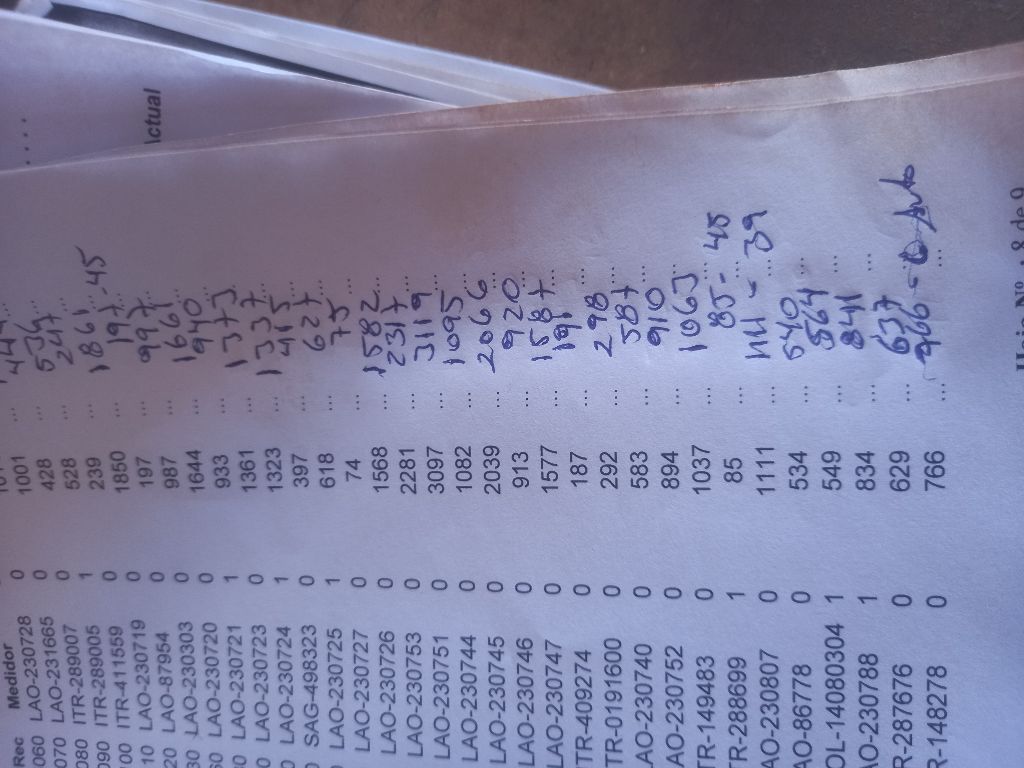 Actual
Rec Medidor
060 LAO-230728 0
070 LAO-231665 0 1001 ...
080 ITR-289007 0 428 ... 444
090 ITR-289005 1 528 ... 536
ITR-411559 0 239 ... 247
10 LAO-230719 0 1850 ... 1861 ...
20 LAO-87954 0 197 ... 197 - 45
30 LAO-230303 0 987 ... 997 ...
LAO-230720 0 1644 ... 1661 ...
LAO-230721 1 933 ... 940 ...
LAO-230723 0 1361 ... 1373 ...
LAO-230724 1 1323 ... 1337 ...
SAG-498323 0 397 ... 415 ...
LAO-230725 1 618 ... 627 ...
LAO-230727 0 74 ... 75 ...
LAO-230726 0 1568 ... 1582 ...
LAO-230753 0 2281 ... 2317 ...
LAO-230751 0 3097 ... 3119 ...
LAO-230744 0 1082 ... 1095 ...
LAO-230745 0 2039 ... 2066 ...
LAO-230746 0 913 ... 920 ...
LAO-230747 0 1577 ... 1587 ...
TR-409274 0 187 ... 191 ...
TR-0191600 0 292 ... 298 ...
LAO-230740 0 583 ... 587 ...
AO-230752 0 894 ... 910 ...
TR-149483 0 1037 ... 1063 ...
TR-288699 1 85 ... 85 - 48
AO-230807 0 1111 ... 1111 - 39
AO-86778 0 534 ... 540 ...
OL-14080304 1 549 ... 564 ...
AO-230788 1 834 ... 841 ...
R-287676 0 629 ... 637 ...
R-148278 0 766 ... 966
Hoja Nº : 8 de 9